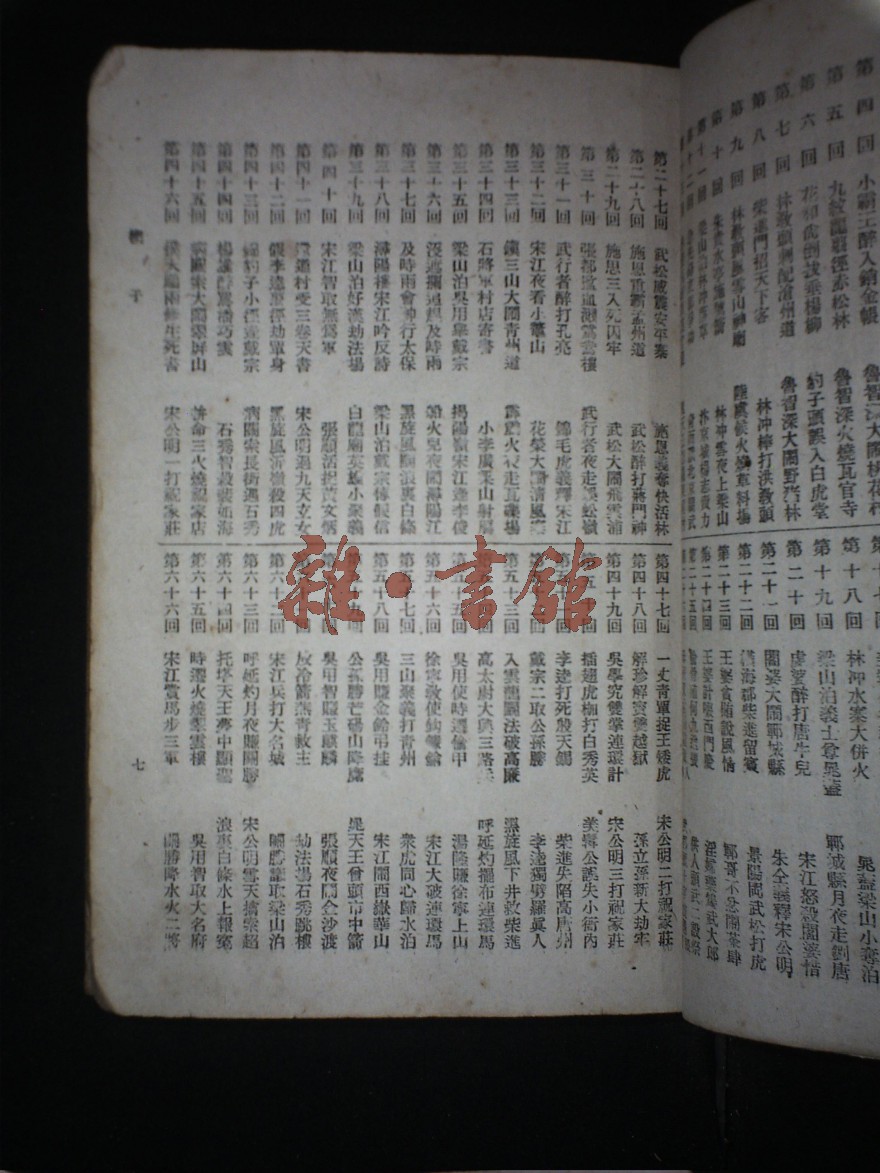 第四回 小霸王醉入銷金帳 魯智深大鬧桃花村
第五回 九紋龍剪徑赤松林 魯智深火燒瓦官寺
第六回 花和尚倒拔垂楊柳 豹子頭誤入白虎堂
第七回 林教頭刺配滄州道 魯智深大鬧野豬林
第八回 柴進門招天下客 林沖棒打洪教頭
第九回 林教頭風雪山神廟 陸虞候火燒草料場
第十回 朱貴水亭施號箭 林沖雪夜上梁山
第十一回 梁山泊林沖落草 汴京城楊志賣刀
第十八回 林沖水寨大併火 晁蓋梁山小奪泊
第十九回 梁山泊義士尊晁蓋 鄆城縣月夜走劉唐
第二十回 虔婆醉打唐牛兒 宋江怒殺閻婆惜
第二十一回 閻婆大鬧鄆城縣 朱仝義釋宋公明
第二十二回 橫海郡柴進留賓 景陽岡武松打虎
第二十三回 王婆貪賄說風情 鄆哥不忿鬧茶肆
第二十四回 王婆計啜西門慶 淫婦藥鴆武大郎
第二十五回
第二十七回 武松威震安平寨 施恩義奪快活林
第二十八回 施恩重霸孟州道 武松醉打蔣門神
第二十九回 施恩三入死囚牢 武松大鬧飛雲浦
第三十回 張都監血濺鴛鴦樓 武行者夜走蜈蚣嶺
第三十一回 武行者醉打孔亮 錦毛虎義釋宋江
第三十二回 宋江夜看小鰲山 花榮大鬧清風寨
第三十三回 鎮三山大鬧青州道 霹靂火夜走瓦礫場
第三十四回 石將軍村店寄書 小李廣梁山射雁
第三十五回 梁山泊吳用舉戴宗 揭陽嶺宋江逢李俊
第三十六回 沒遮攔追趕及時雨 船火兒夜鬧潯陽江
第三十七回 及時雨會神行太保 黑旋風鬥浪裏白條
第三十八回 潯陽樓宋江吟反詩 梁山泊戴宗傳假信
第三十九回 梁山泊好漢劫法場 白龍廟英雄小聚義
第四十回 宋江智取無為軍 張順活捉黃文炳
第四十一回 還道村受三卷天書 宋公明遇九天玄女
第四十二回 假李逵剪徑劫單身 黑旋風沂嶺殺四虎
第四十三回 錦豹子小徑逢戴宗 病關索長街遇石秀
第四十四回 楊雄醉罵潘巧雲 石秀智殺裴如海
第四十五回 病關索大鬧翠屏山 拚命三火燒祝家店
第四十六回 撲天雕兩修生死書 宋公明一打祝家莊
第四十七回 一丈青單捉王矮虎 宋公明二打祝家莊
第四十八回 解珍解寶雙越獄 孫立孫新大劫牢
第四十九回 吳學究雙掌連環計 宋公明三打祝家莊
第五十回 插翅虎枷打白秀英 美髯公誤失小衙內
第五十一回 李逵打死殷天錫 柴進失陷高唐州
第五十二回 戴宗二取公孫勝 李逵獨劈羅真人
第五十三回 入雲龍鬥法破高廉 黑旋風下井救柴進
第五十四回 高太尉大興三路兵 呼延灼擺布連環馬
第五十五回 吳用使時遷偷甲 湯隆賺徐寧上山
第五十六回 徐寧教使鈎鐮鎗 宋江大破連環馬
第五十七回 三山聚義打青州 衆虎同心歸水泊
第五十八回 吳用賺金鈴吊挂 宋江鬧西嶽華山
第五十九回 公孫勝芒碭山降魔 晁天王曾頭市中箭
第六十回 吳用智賺玉麒麟 張順夜鬧金沙渡
第六十一回 放冷箭燕青救主 劫法場石秀跳樓
第六十二回 宋江兵打大名城 關勝議取梁山泊
第六十三回 呼延灼月夜賺關勝 宋公明雪天擒索超
第六十四回 托塔天王夢中顯聖 浪裏白條水上報冤
第六十五回 時遷火燒翠雲樓 吳用智取大名府
第六十六回 宋江賞馬步三軍 關勝降水火二將
楔子
七
雜·書館